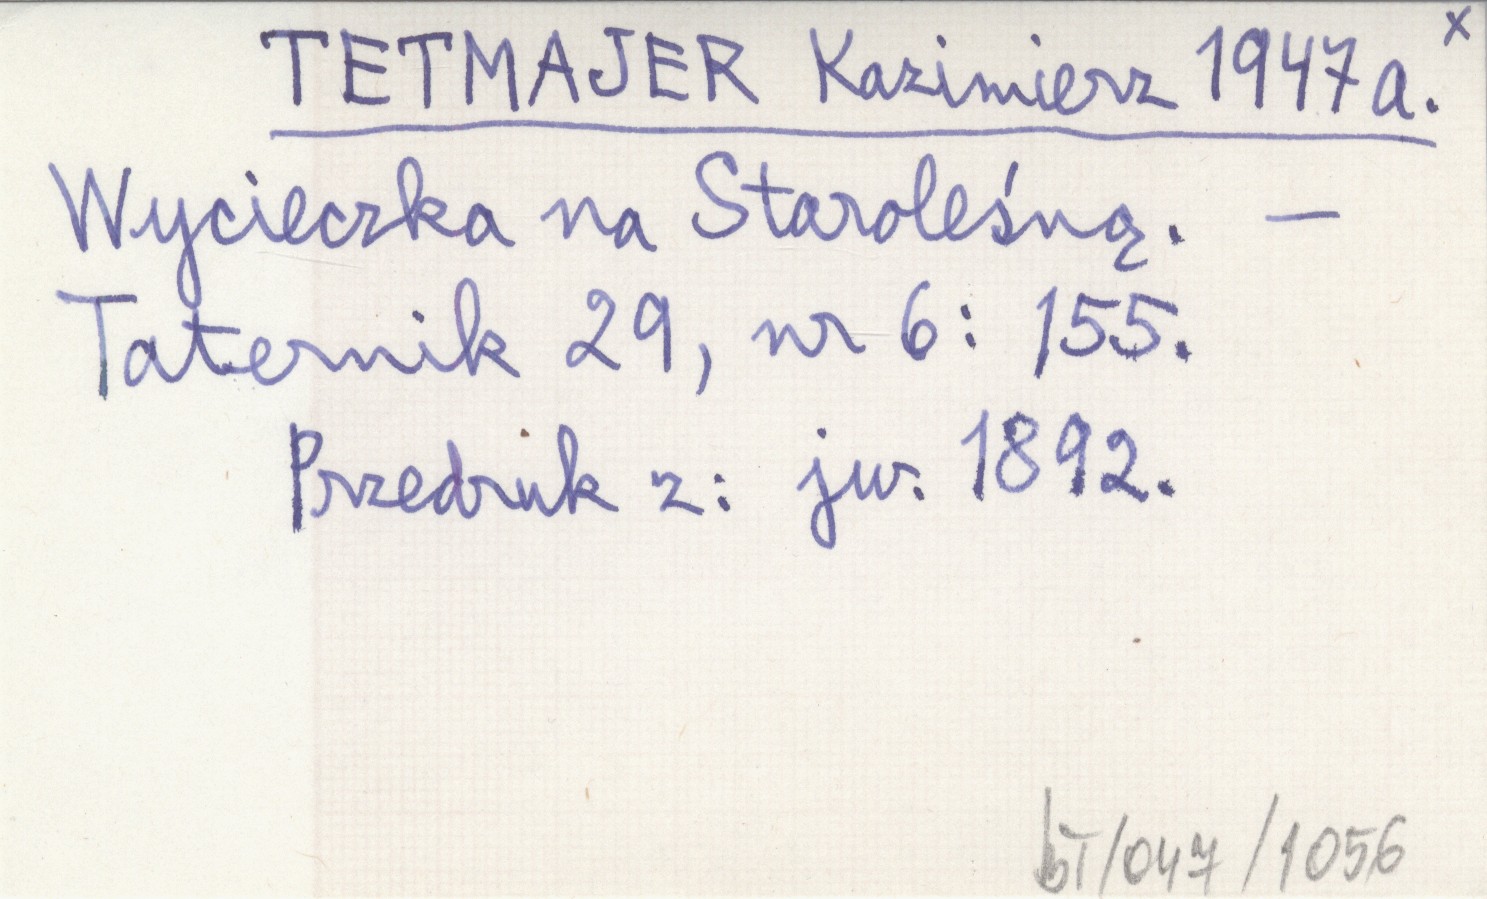 TETMAJER Kazimierz 1947a. x
Wycieczka na Staroleśną. —
Taternik 29, nr 6: 155.
Przedruk z: jw. 1892.
bT/047/1056